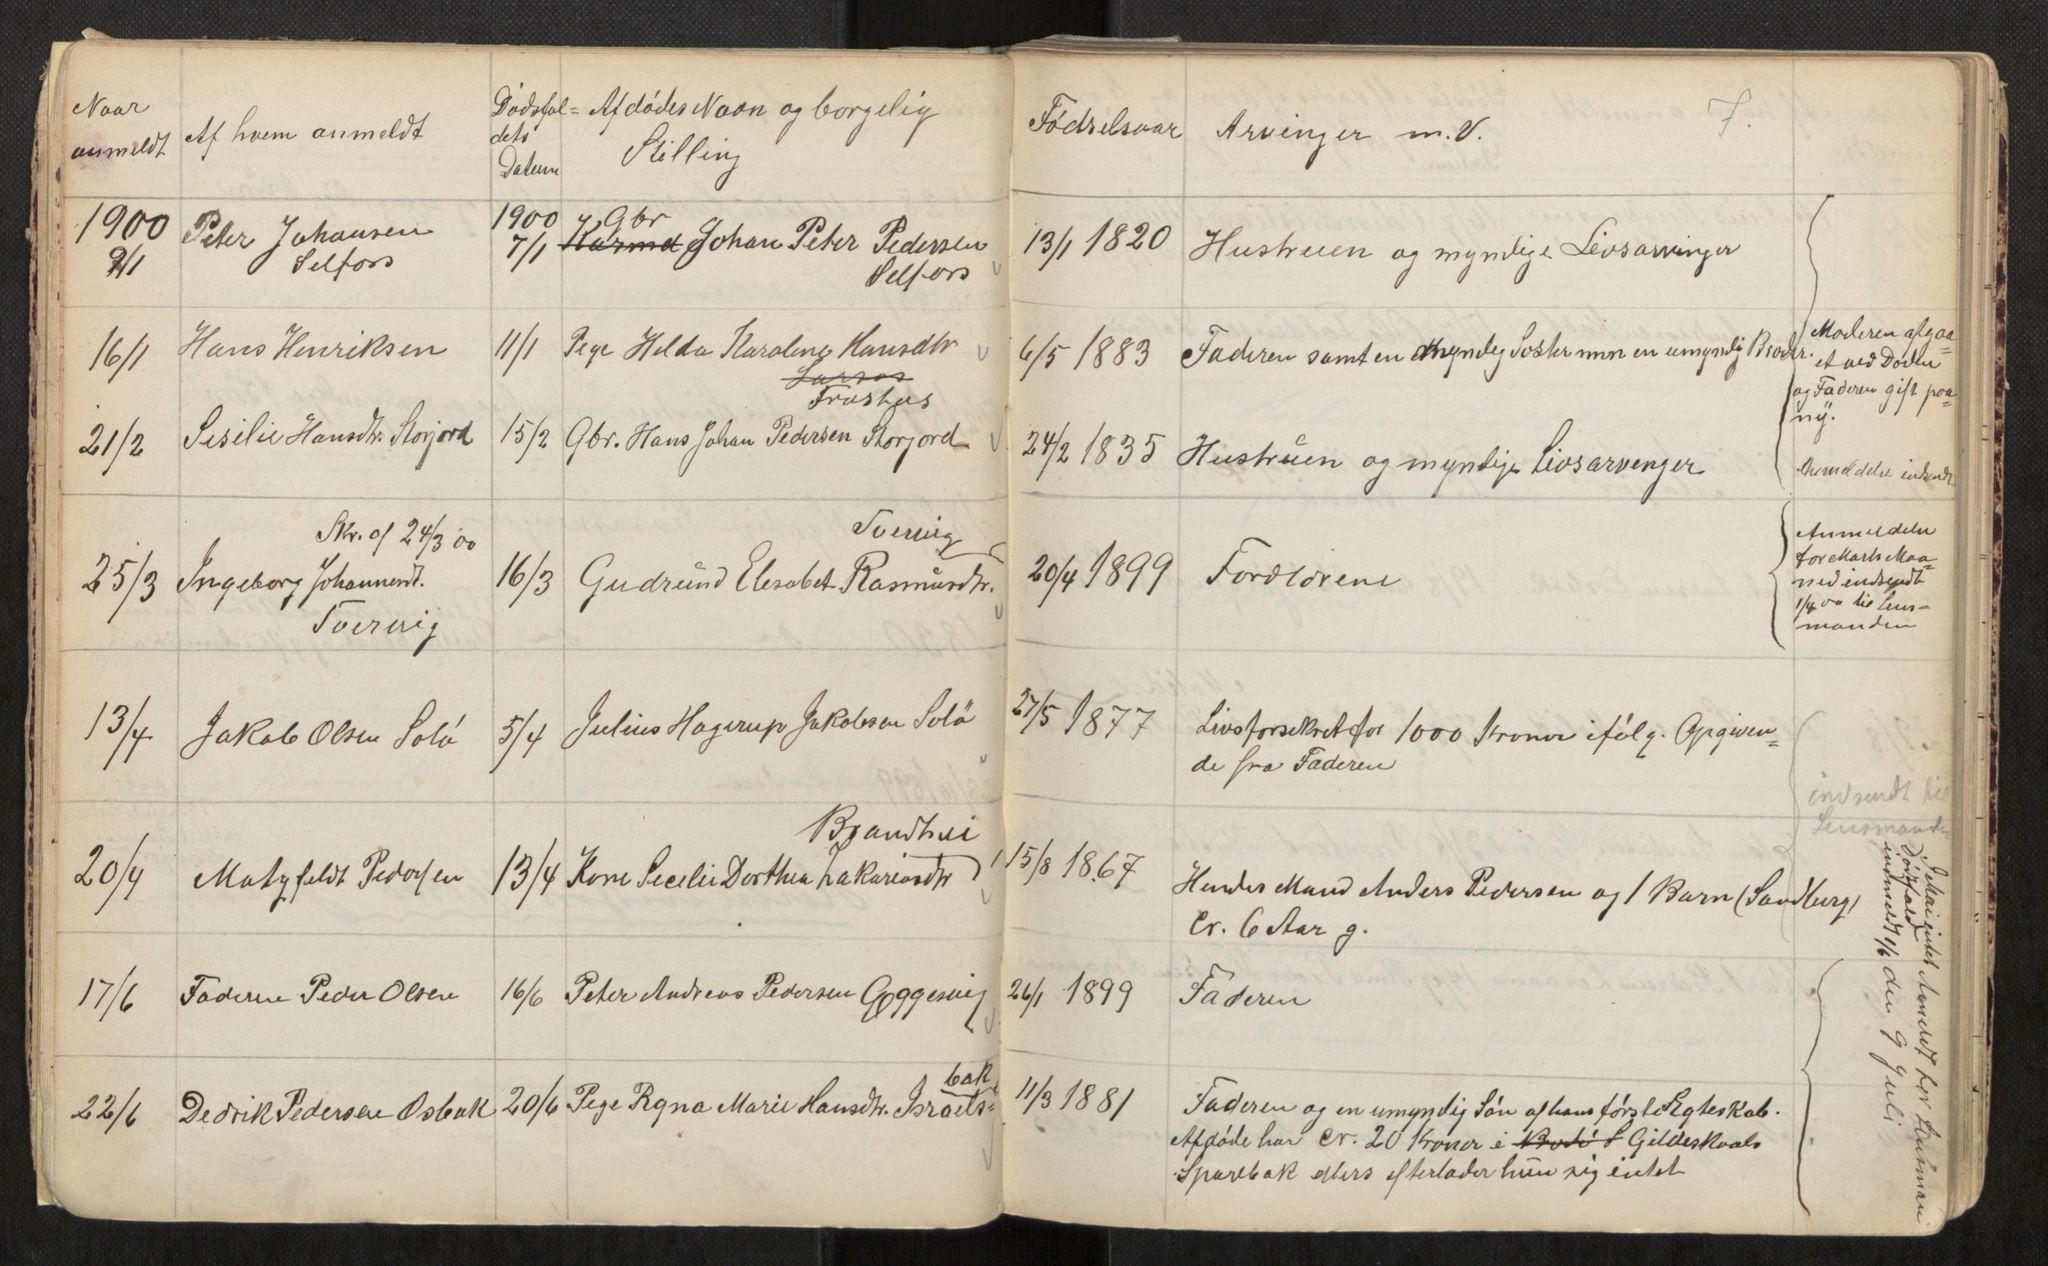 Naar anmeldt
Af hvem anmeldt
Dødsfal=
dets
Datum
Afdødes Navn og borgelig
Stilling
Fødselsaar
Arvinger m. V.
7.
1900
9/1
Peter Johansen
Selfors
1900
7/1
Gbr
Johan Peter Pedersen
Selfors
13/1 1820
Hustruen og myndige Livsarvinger
16/1
Hans Henriksen
11/1
Pige Hilda Karoline Hansdtr
Frushus
6/5 1883
Faderen samt en myndig Søster men en umyndig Broder.
Moderen afgaa=
et ved Døden
og Faderen gift paa
ny.
21/2
Sisilie Hansdtr. Storjord
15/2
Gbr. Hans Johan Pedersen Storjord
24/2 1835
Hustruen og myndige Livsarvenger
Anmeldelse indsendt
Skr. af 24/3 00
25/3
Ingeborg Johannesdt.
Tvervig
16/3
Tvervig
Gudrund Elesabet Rasmusdtr.
20/4 1899
Forældrene
Anmeldelse
for Marts Maa=
ned indsendt
1/4 00 til Lens=
manden
13/4
Jakob Olsen Solø
5/4
Julius Hagerup Jakobsen Solø
27/5 1877
Livsforsekret for 1000 Kroner ifølg. Opgiven=
de fra Faderen
indsendt til
Lensmanden
20/4
Matyfeldt Pedersen
13/4
Brandhei
Kone Secelie Dorthea Zakariasdtr
15/8 1867
Hendes Mand Anders Pedersen og 1 Barn (Sandburg)
cr. 6 Aar g.
17/6
Faderen Peder Olsen
16/6
Peter Andreas Pedersen Gjggesvig
26/1 1899
Faderen
I Mai intet Anmeldt for Lensman
Dødsfald
indmeldt 1/6 den 9 Juli
22/6
Dedrik Pedersen Osbak
20/6
Pige Ragna Marie Hansdtr. Israels=
bak
11/3 1881
Faderen og en umyndig Søn af hans første Egteskab.
Afdøde har cr. 20 Kroner i Gildeskaals
Sparebak ellers efterlader hun sig intet